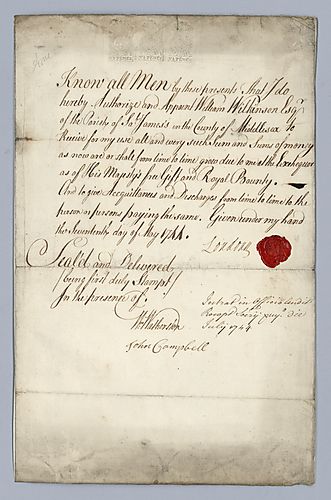 Know all Men by these presents That I do
hereby Authorize and Appoint William Wilkinson Esqr.
of the Parish of St. James's in the County of Middlesex To
Receive for my use all and every such Sum and Sums of money
as now are or shall from time to time grow due to me at the Exchequer
as of His Majesty's free Gift and Royal Bounty.
And to give Acquittances and Discharges from time to time to the
person or persons paying the same. Given under my hand
the Seventeenth day of May 1744.
Loudoun
Seal'd and Delivered
(being first duly Stampt)
In the presence of.
John Campbell
July 1744